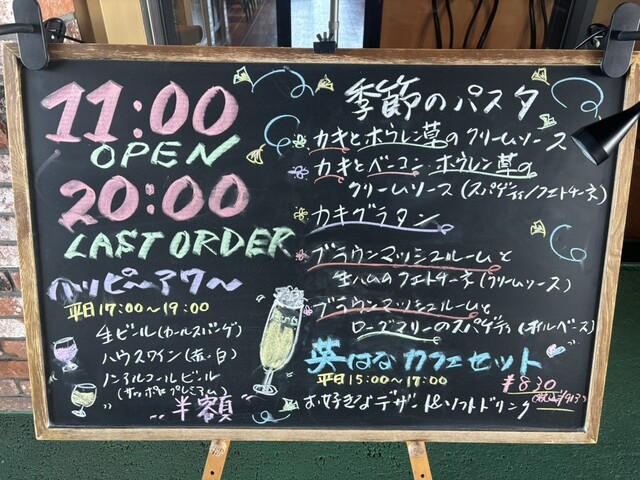 11:00
OPEN
20:00
LAST ORDER
ハッピーアワー
平日17:00〜19:00
生ビール(カールスバーグ)
ハウスワイン(赤・白)
ノンアルコールビール
(サッポロプレミアム)
半額
季節のパスタ
カキとホウレン草のクリームソース
カキとベーコン・ホウレン草の
クリームソース(スパゲティ/フェトチーネ)
カキグラタン
ブラウンマッシュルームと
生ハムのフェトチーネ(クリームソース)
ブラウンマッシュルームと
ローズマリーのスパゲティ(オイルベース)
英はなカフェセット
平日15:00〜17:00
¥830
(税込¥913)
お好きなデザート&ソフトドリンク